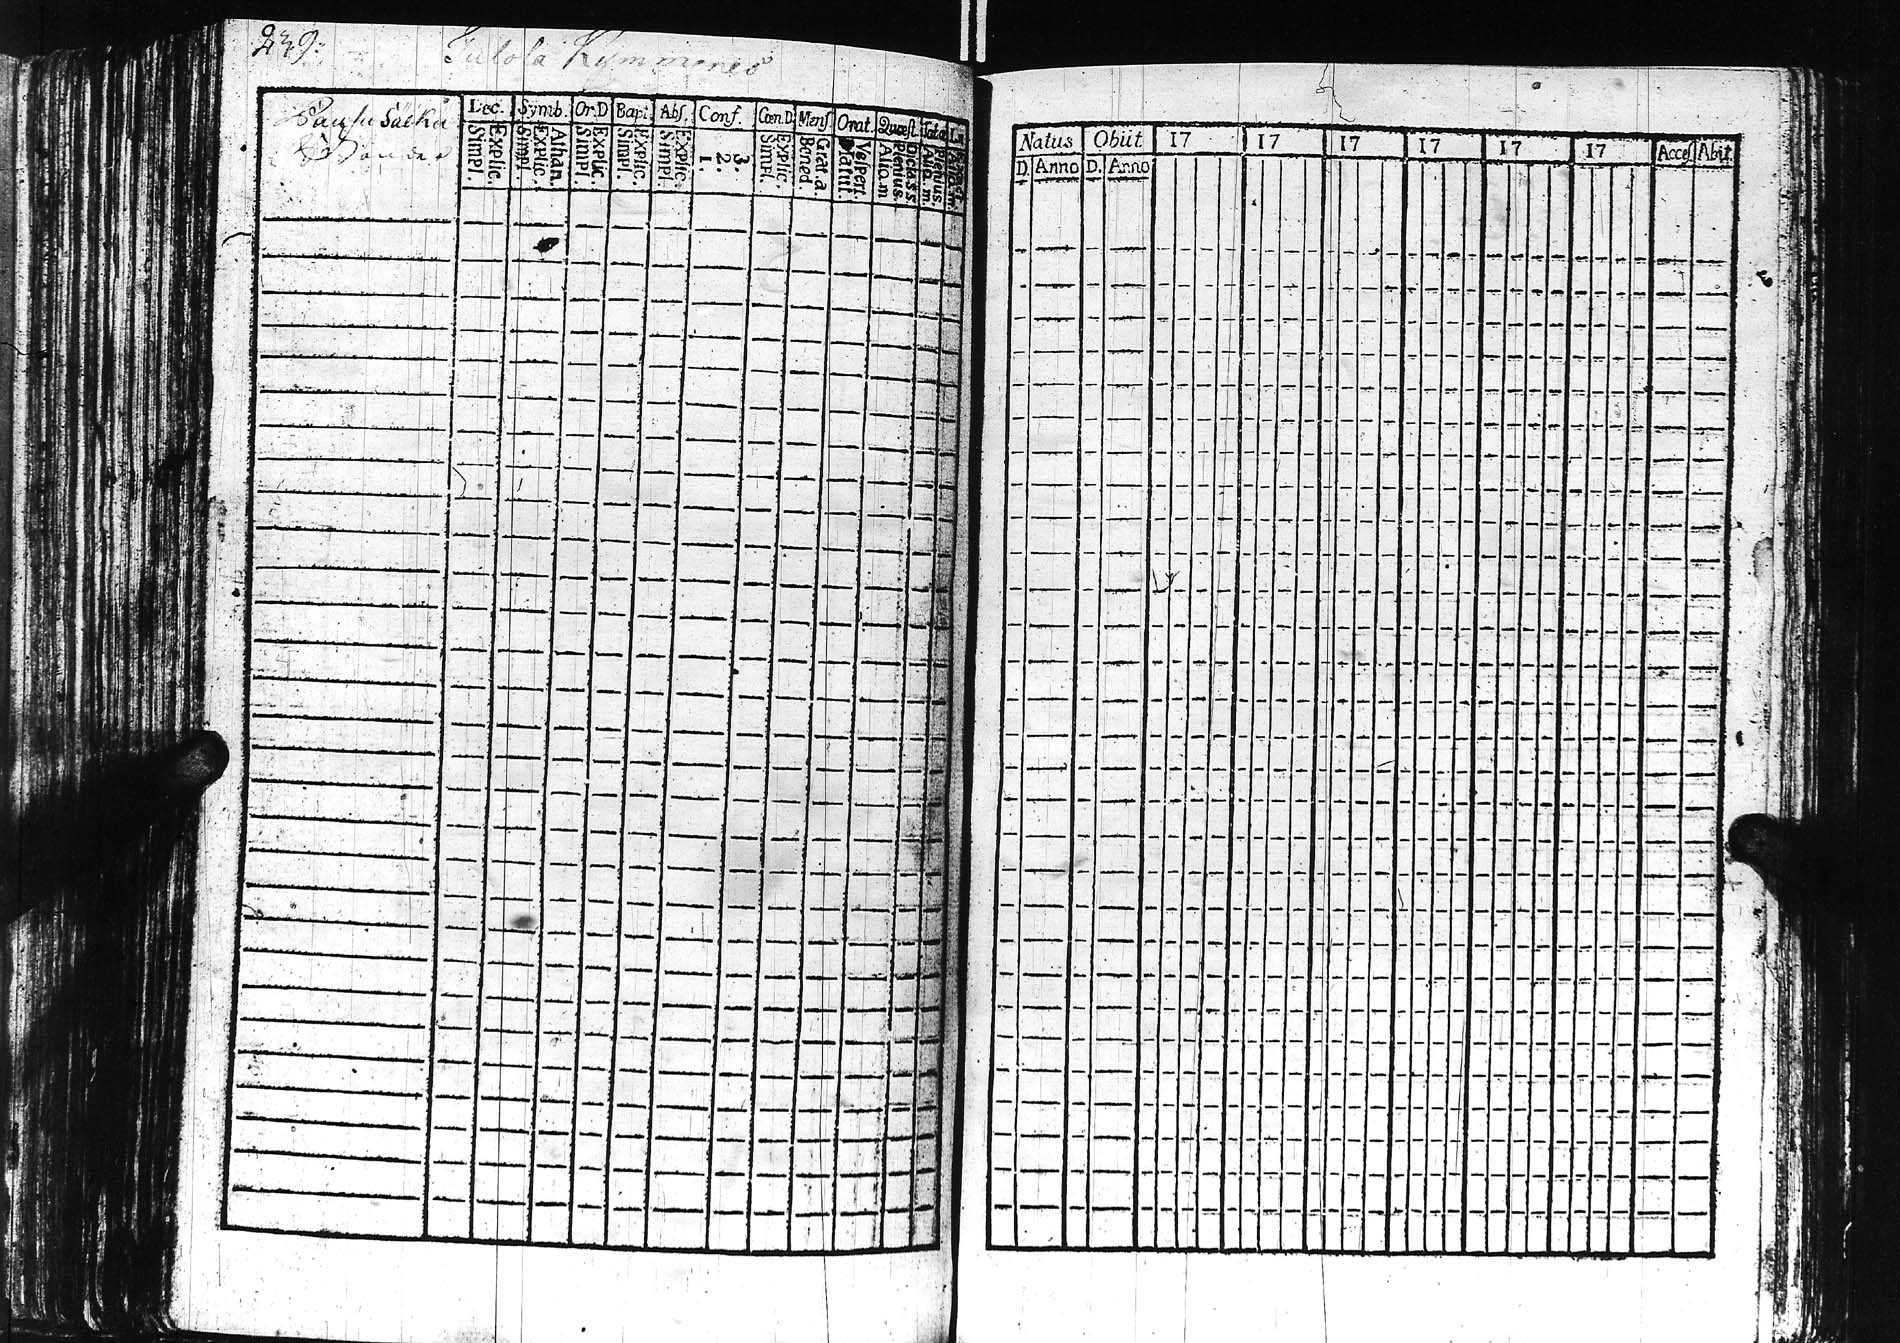 239.
Julola Kymmenes
Lec. Symb. Or.D Bapt. Abs. Conf. Cœn.D Mens. Orat. Quæst.
Explic. Simpl. Athan. Explic. Simpl. Explic. Simpl. Explic. Simpl. Explic. Simpl. 3. 2. 1. Explic. Simpl. Grat.a Bened. Vespert. Matut. Dict.a S.S. Plenius. Alio.m
Natus Obiit 17 17 17 17 17 17 Acces. Abit.
D. Anno D. Anno